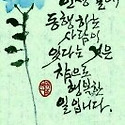 인생길에
동행하는
사람이
있다는 것은
참으로
행복한
일입니다.